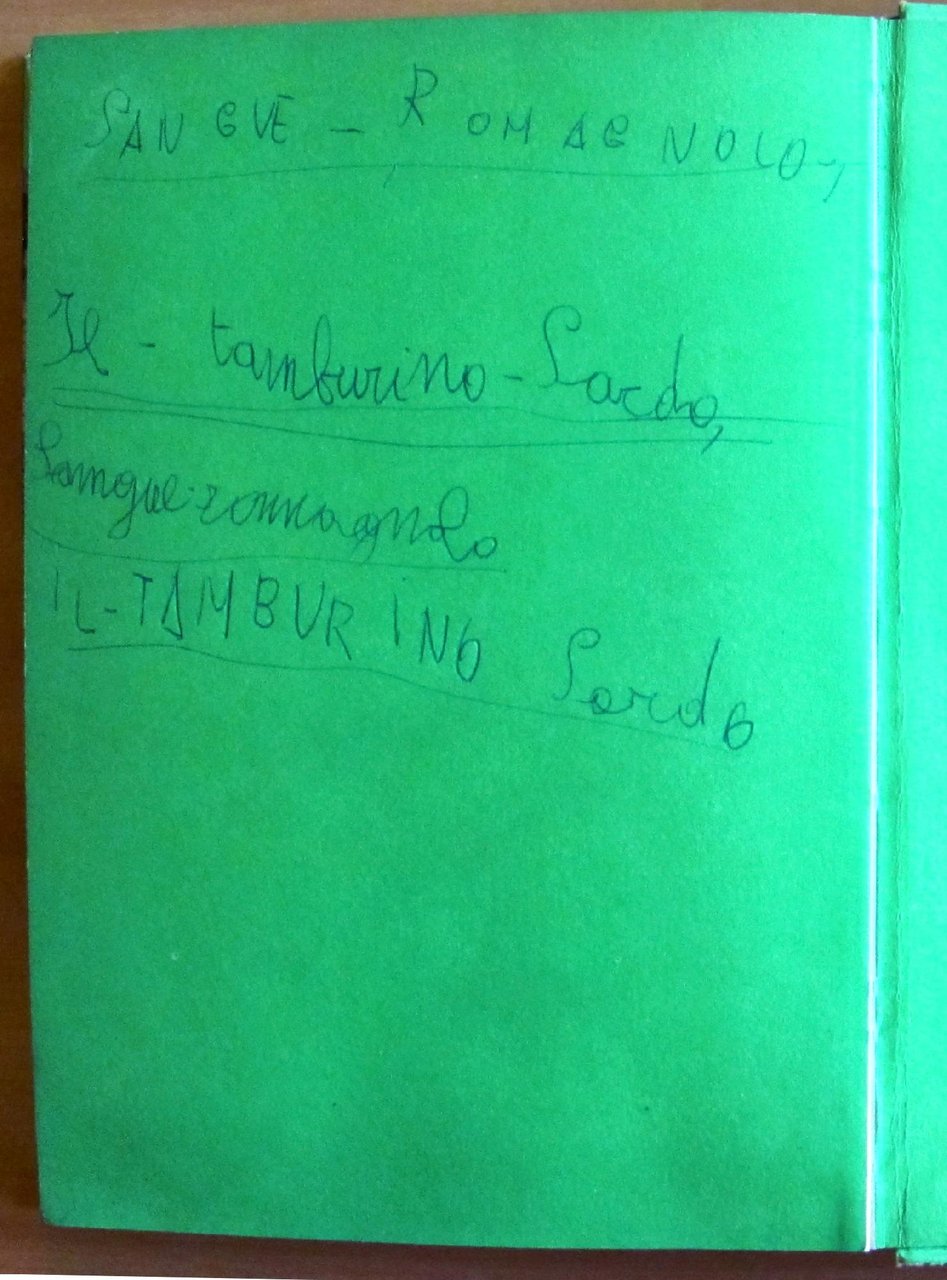 SANGUE - ROMAGNOLO-,
Il - tamburino - Sardo,
Sangue-romagnolo
IL-TAMBURINO Sardo